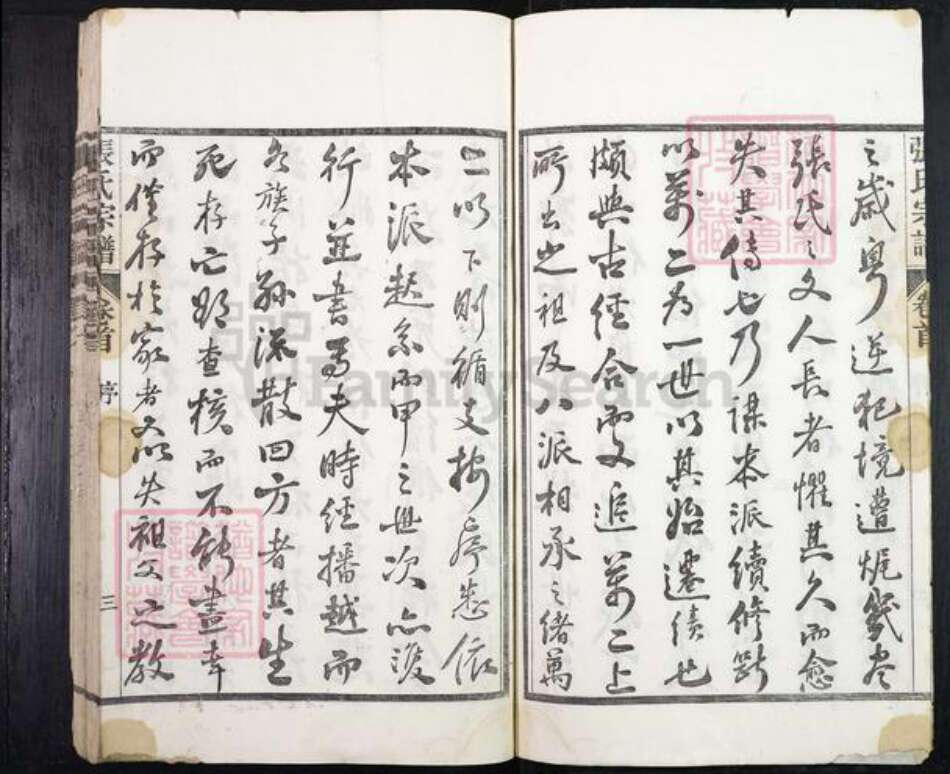 張氏宗譜 卷首
之歲粵逆犯境遭焜幾盡
張氏之文人長者懼其久而愈
失其傳也乃謀本派續修斷
以萬二為一世以其始遷績也
頗與古經合而又追萬二上
所出之祖及八派相承之緒萬
二以下則循支按房悉依
本派起系而甲之世次亦從
行並書焉夫時經播越而
各族子孫流散四方者其生
死存亡既查核而不能盡幸
而僅存於家者又以失祖父之教
張氏宗譜 卷首 序 三
FamilySearch